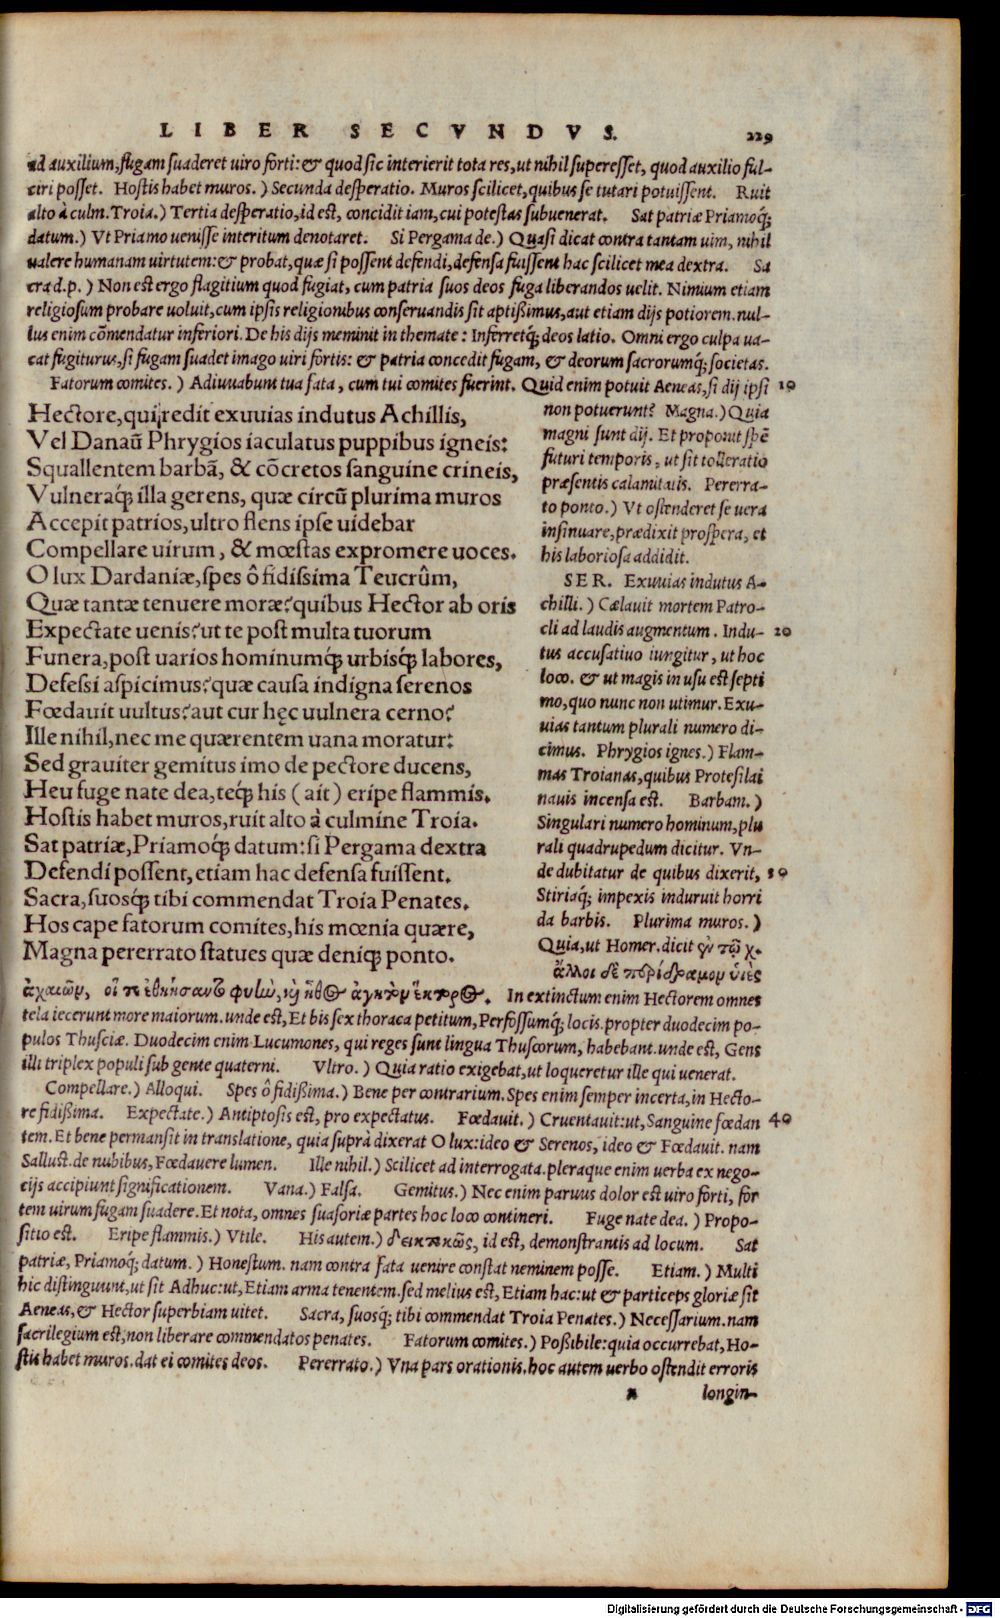 LIBER SECVNDVS. 229
ad auxilium, fugam suaderet uiro forti: & quod sic interierit tota res, ut nihil superesset, quod auxilio ful-
ciri posset. Hostis habet muros.) Secunda desperatio. Muros scilicet, quibus se tutari potuissent. Ruit
alto à culm. Troia.) Tertia desperatio, id est, concidit iam, cui potestas subuenerat. Sat patriæ Priamoq́;
datum.) Vt Priamo uenisse interitum denotaret. Si Pergama de.) Quasi dicat contra tantam uim, nihil
ualere humanam uirtutem: & probat, quæ si possent defendi, defensa fuissent hac scilicet mea dextra. Sa
cra d.p.) Non est ergo flagitium quod fugiat, cum patria suos deos fuga liberandos uelit. Nimium etiam
religiosum probare uoluit, cum ipsis religionibus conseruandis sit aptißimus, aut etiam dijs potiorem. nul-
lus enim cōmendatur inferiori. De his dijs meminit in themate: Inferretq́; deos latio. Omni ergo culpa ua-
cat fugiturus, si fugam suadet imago uiri fortis: & patria concedit fugam, & deorum sacrorumq́; societas.
Fatorum comites.) Adiuuabunt tua fata, cum tui comites fuerint. Quid enim potuit Aeneas, si dij ipsi 10
Hectore, qui redit exuuias indutus Achillis,
Vel Danaū Phrygios iaculatus puppibus igneis:
Squallentem barbā, & cōcretos sanguine crineis,
Vulneraq́; illa gerens, quæ circū plurima muros
Accepit patrios, ultro flens ipse uidebar
Compellare uirum, & mœstas expromere uoces.
O lux Dardaniæ, spes ô fidissima Teucrûm,
Quæ tantæ tenuere moræ? quibus Hector ab oris
Expectate uenis? ut te post multa tuorum
Funera, post uarios hominumq́; urbisq́; labores,
Defessi aspicimus? quæ causa indigna serenos
Fœdauit uultus? aut cur hęc uulnera cerno?
Ille nihil, nec me quærentem uana moratur:
Sed grauiter gemitus imo de pectore ducens,
Heu fuge nate dea, teq́; his (ait) eripe flammis.
Hostis habet muros, ruit alto à culmine Troia.
Sat patriæ, Priamoq́; datum: si Pergama dextra
Defendi possent, etiam hac defensa fuissent.
Sacra, suosq́; tibi commendat Troia Penates.
Hos cape fatorum comites, his mœnia quære,
Magna pererrato statues quæ deniq́; ponto.
non potuerunt? Magna.) Quia
magni sunt dij. Et proponit spē
futuri temporis, ut sit tolleratio
præsentis calamitatis. Pererra-
to ponto.) Vt ostenderet se uera
insinuare, prædixit prospera, et
his laboriosa addidit.
SER. Exuuias indutus A-
chilli.) Cælauit mortem Patro-
cli ad laudis augmentum. Indu- 20
tus accusatiuo iungitur, ut hoc
loco. & ut magis in usu est septi
mo, quo nunc non utimur. Exu-
uias tantum plurali numero di-
cimus. Phrygios ignes.) Flam-
mas Troianas, quibus Protesilai
nauis incensa est. Barbam.)
Singulari numero hominum, plu
rali quadrupedum dicitur. Vn-
de dubitatur de quibus dixerit, 30
Stiriaq́; impexis induruit horri
da barbis. Plurima muros.)
Quia, ut Homer. dicit ἐν τῷ χ.
ἄλλοι δὲ περίδραμον ὑιὲς
ἀχαιῶν, οἳ ϗ ἐθηήσαντο φυὼ, ϗ ἦθος ἀγητὸν ἕκτορος. In extinctum enim Hectorem omnes
tela iecerunt more maiorum. unde est, Et bis sex thoraca petitum, Perfossumq́; locis. propter duodecim po-
pulos Thusciæ. Duodecim enim Lucumones, qui reges sunt lingua Thuscorum, habebant. unde est, Gens
illi triplex populi sub gente quaterni. Vltro.) Quia ratio exigebat, ut loqueretur ille qui uenerat.
Compellare.) Alloqui. Spes ô fidißima.) Bene per contrarium. Spes enim semper incerta, in Hecto-
re fidißima. Expectate.) Antiptosis est, pro expectatus. Fœdauit.) Cruentauit: ut, Sanguine fœdan 40
tem. Et bene permansit in translatione, quia suprà dixerat O lux: ideo & Serenos, ideo & Fœdauit. nam
Sallust. de nubibus, Fœdauere lumen. Ille nihil.) Scilicet ad interrogata. pleraque enim uerba ex nego-
cijs accipiunt significationem. Vana.) Falsa. Gemitus.) Nec enim paruus dolor est uiro forti, for
tem uirum fugam suadere. Et nota, omnes suasoriæ partes hoc loco contineri. Fuge nate dea.) Propo-
sitio est. Eripe flammis.) Vtile. His autem.) δεικτικῶς, id est, demonstrantis ad locum. Sat
patriæ, Priamoq́; datum.) Honestum. nam contra fata uenire constat neminem posse. Etiam.) Multi
hic distinguunt, ut sit Adhuc: ut, Etiam arma tenentem. sed melius est, Etiam hac: ut & particeps gloriæ sit
Aeneas, & Hector superbiam uitet. Sacra, suosq́; tibi commendat Troia Penates.) Necessarium. nam
sacrilegium est, non liberare commendatos penates. Fatorum comites.) Poßibile: quia occurrebat, Ho-
stis habet muros. dat ei comites deos. Pererrato.) Vna pars orationis. hoc autem uerbo ostendit erroris
n longin-
Digitalisierung gefördert durch die Deutsche Forschungsgemeinschaft - DFG